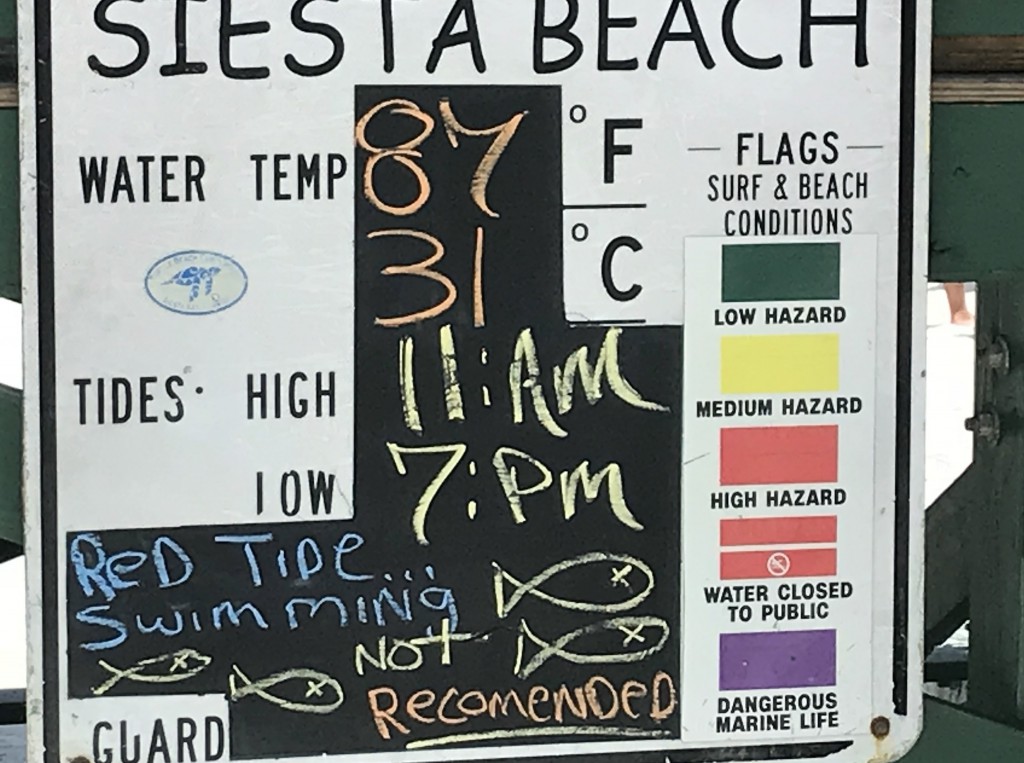 SIESTA BEACH
WATER TEMP 87 °F
31 °C
FLAGS
SURF & BEACH
CONDITIONS
LOW HAZARD
MEDIUM HAZARD
HIGH HAZARD
WATER CLOSED
TO PUBLIC
DANGEROUS
MARINE LIFE
TIDES· HIGH 11:AM
LOW 7:PM
RED TIDE...
SWIMMING
NOT
RECOMENDED
GUARD